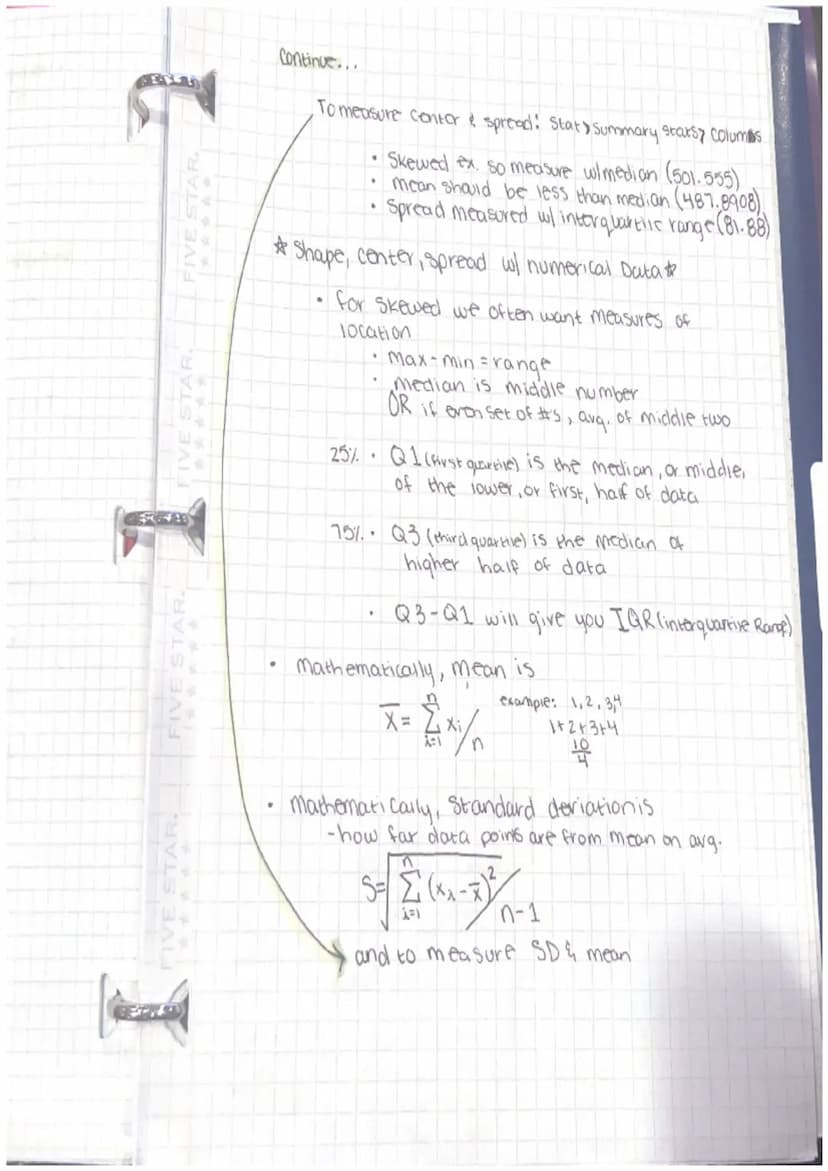 Continue...
To measure center & spread: Stat > Summary Stats > Columns
• Skewed ex. so measure w/median (501.555)
• mean should be less than median (487.8908)
• Spread measured w/ interquartile range (81.88)
☆ Shape, center, spread w/ numerical Data ☆
• for skewed we often want measures of
location
• max - min = range
• median is middle number
OR if even set of #s, avg. of middle two
25% • Q1 (first quartile) is the median, or middle,
of the lower, or first, half of data
75% • Q3 (third quartile) is the median of
higher half of data
• Q3-Q1 will give you IQR (interquartile Range)
• mathematically, mean is
x̄ = n Σ i=1 xi / n
example: 1, 2, 3, 4
1+2+3+4
10
4
• mathematically, standard deviation is
- how far data points are from mean on avg.
S = √ n Σ i=1 (xi - x̄)² / n-1
and to measure SD & mean
FIVE STAR.
FIVE STAR.
FIVE STAR.
FIVE STAR.